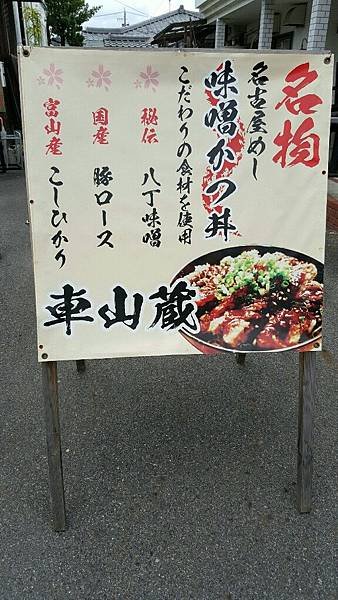 名物
名古屋めし
味噌かつ丼
こだわりの食材を使用
秘伝 八丁味噌
国産 豚ロース
富山産 こしひかり
車山蔵